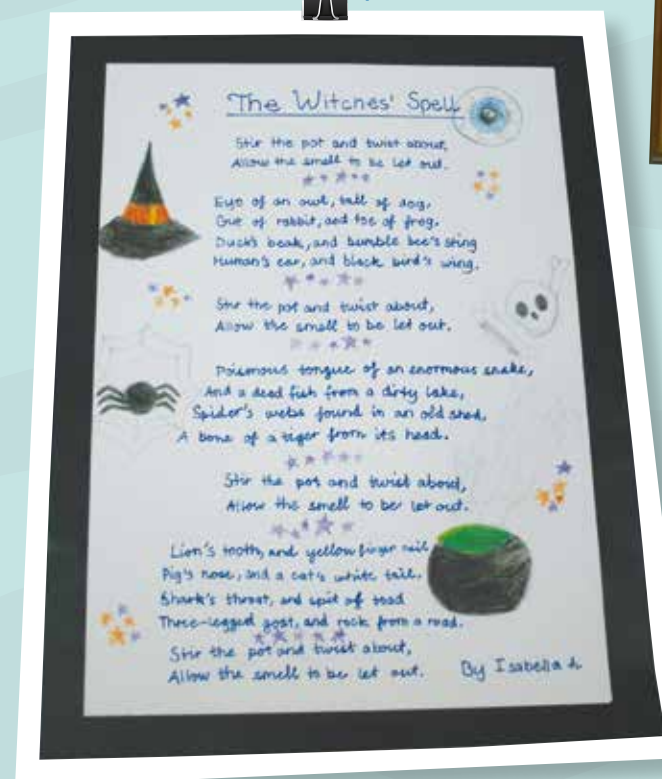 The Witches' Spell
Stir the pot and twist about,
Allow the smell to be let out.
Eye of an owl, tail of dog,
Gut of rabbit, and toe of frog.
Duck's beak, and bumble bee's sting
Human's ear, and black bird's wing.
Stir the pot and twist about,
Allow the smell to be let out.
Poisonous tongue of an enormous snake,
And a dead fish from a dirty lake,
Spider's webs found in an old shed,
A bone of a tiger from its head.
Stir the pot and twist about,
Allow the smell to be let out.
Lion's tooth, and yellow finger nail
Pig's nose, and a cat's white tail.
Shark's throat, and spit of toad
Three-legged goat, and rock from a road.
Stir the pot and twist about,
Allow the smell to be let out.
By Isabella